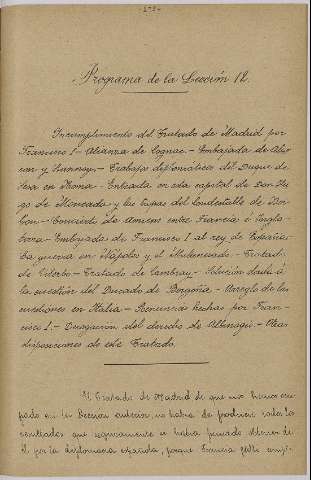 Programa de la Lección 12.
Incumplimiento del Tratado de Madrid por
Francisco I.- Alianza de Cognac.- Embajada de
y Lannoy.- Trabajos diplomáticos del Duque de
Sesa en Roma.- Entrada en esta capital de Don Hu-
go de Moncada y las tropas del Condestable de Bor-
bon.- Concierto de Amiens entre Francia é Ingla-
terra.- Embajada de Francisco I al rey de España.-
La guerra en Nápoles y el Milanesado.- Tratado
de Viterbo.- Tratado de Cambray.- Solución dada á
la cuestión del Ducado de Borgoña.- Arreglo de las
cuestiones en Italia.- Renuncias hechas por Fran-
cisco I.- Derogación del derecho de Albinagio.- Otras
disposiciones de este Tratado.
El Tratado de Madrid de que nos hemos ocu-
pado en la Lección anterior, no había de producir todos los
resultados que seguramente se había pensado obtener de
él por la diplomacia española, porque Francisco